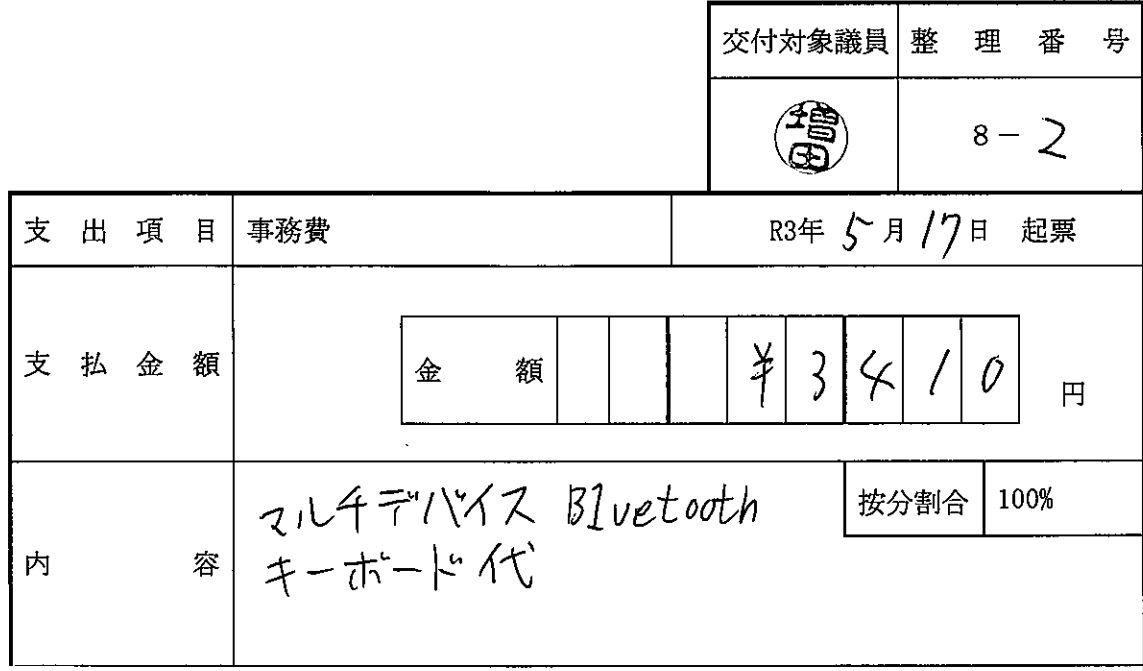 交付対象議員 整理番号
増田 8-2
支出項目 事務費 R3年5月17日 起票
支払金額 金額 ¥3410 円
内容 マルチデバイス Bluetooth 按分割合 100%
キーボード代